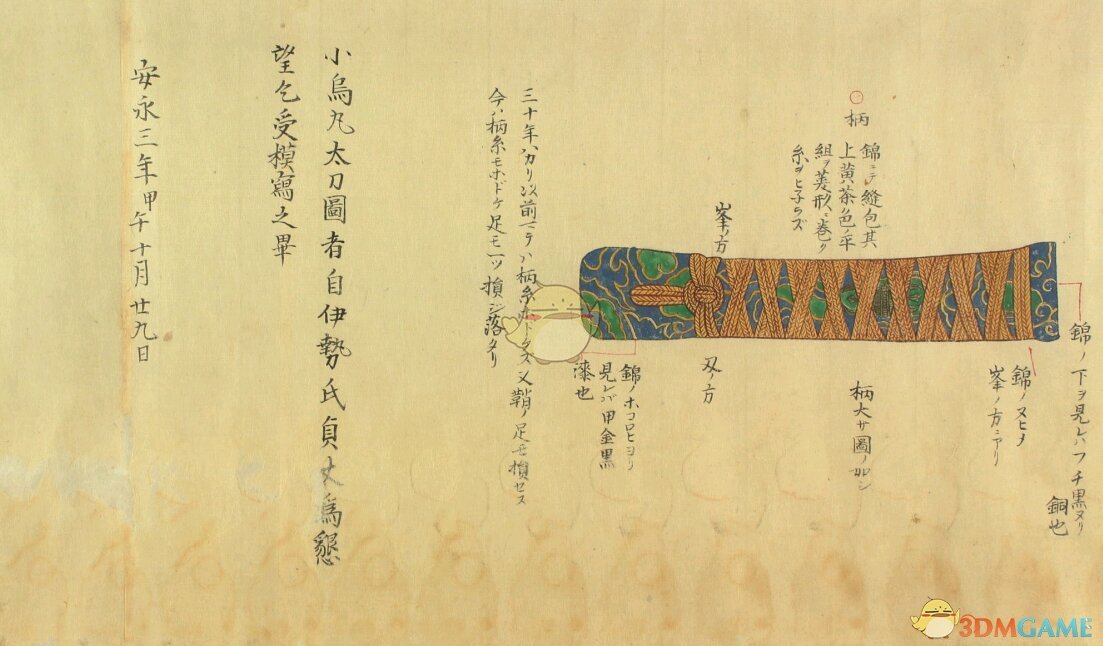 錦ノ下ヲ見レハフチ黒ヌリ
銅也
錦ノヌヒメ
峯ノ方ニアリ
柄
錦ニテ縫包其
上黄茶色ノ平
組ヲ菱形ニ巻ク
糸ヲヒ子ラズ
柄大サ圖ノ如シ
峯ノ方
刃ノ方
錦ノホコロヒヨリ
見レバ甲金黒
漆也
三十年ハカリ以前マテハ柄糸ホドケズ又鞘ノ足モ損セス
今ハ柄糸モホドケ足モ一ツ損ジ落タリ
小烏丸太刀圖者自伊勢氏貞丈爲懇
望乞受模寫之畢
安永三年甲午十月廿九日
3DMGAME